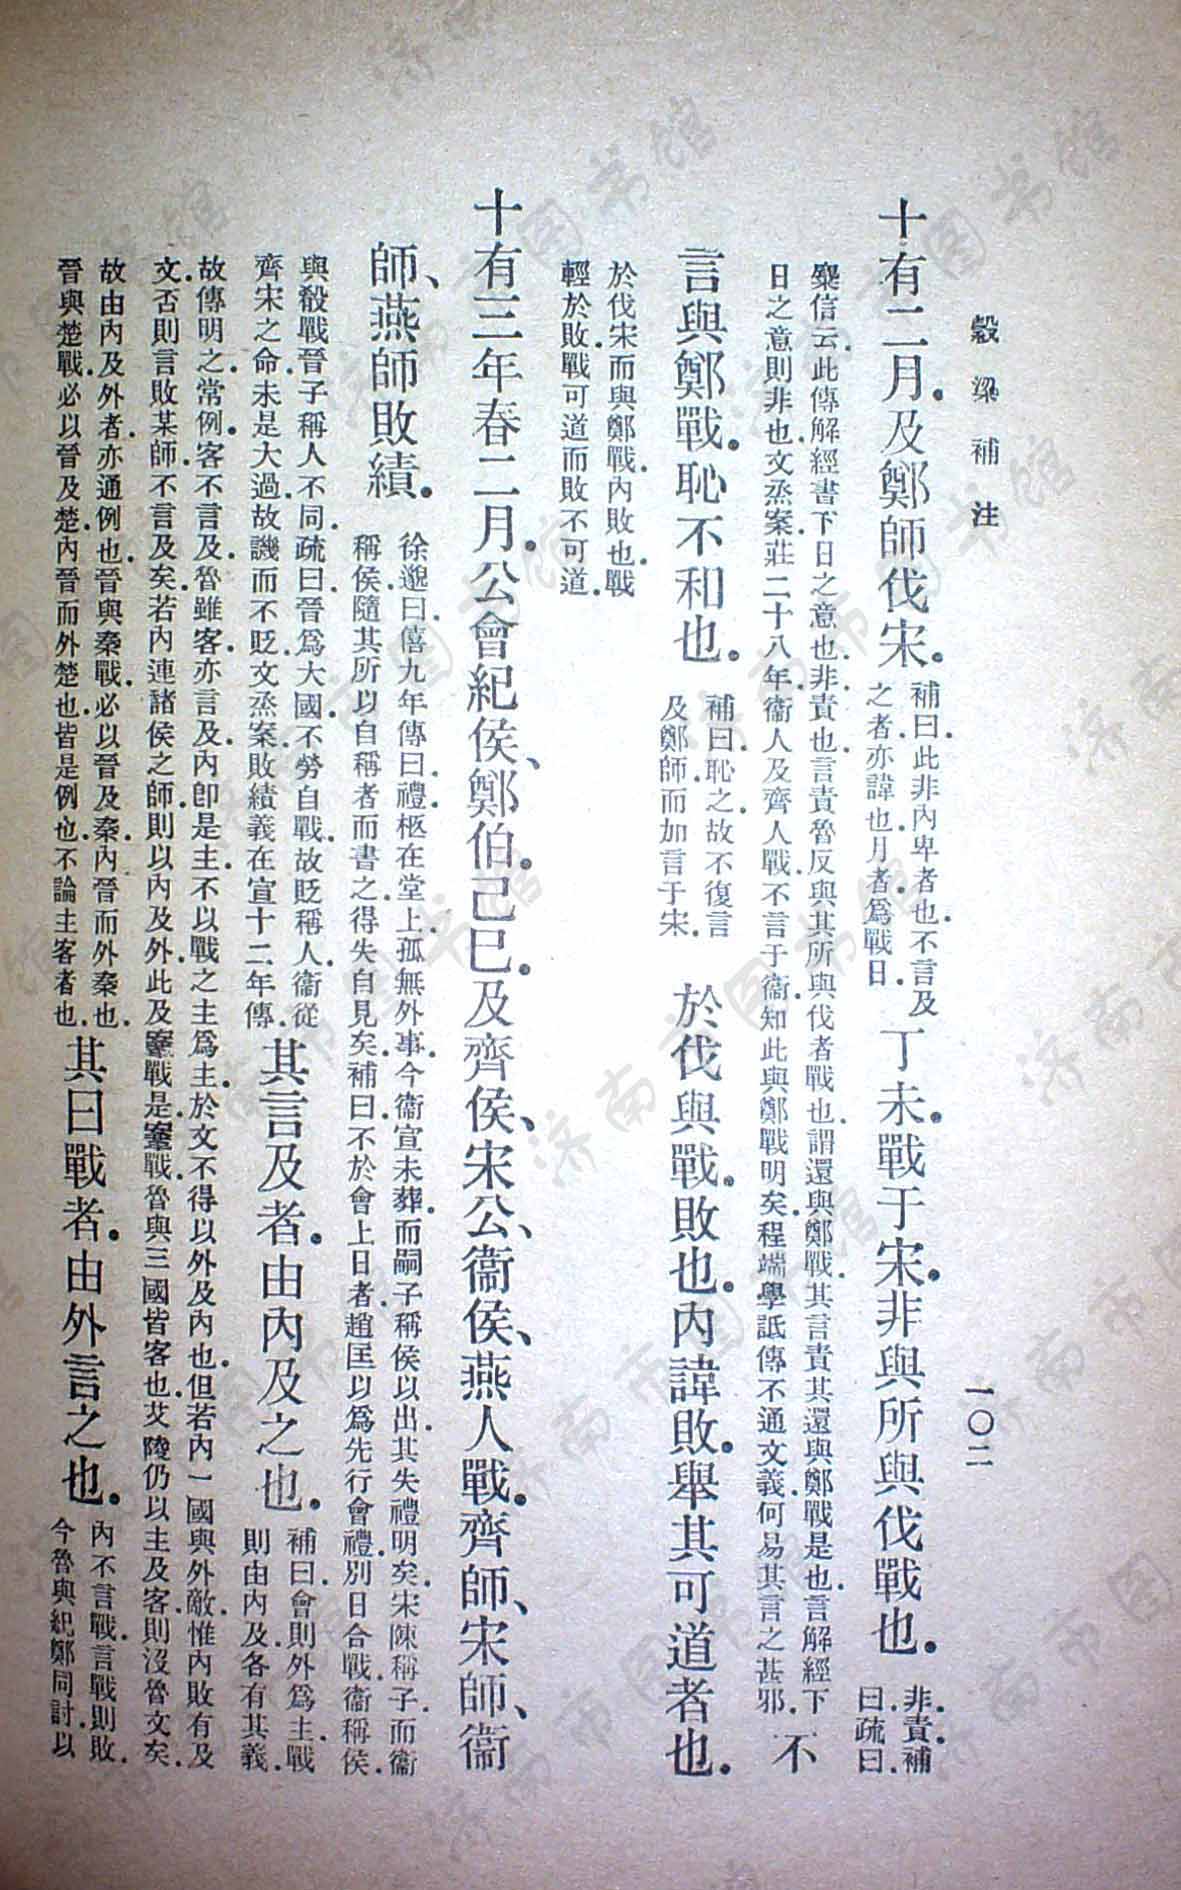 穀梁補注
一〇二
十有二月。及鄭師伐宋。
補曰。此非內卑者也。不言及
之者。亦諱也。月者。爲戰日。
丁未。戰于宋。非與所與伐戰也。
非責。補
曰。疏曰。
麋信云。此傳解經書下日之意也。非責也。言責魯反與其所與伐者戰也。謂還與鄭戰。其言責其還與鄭戰是也。言解經下
日之意則非也。文烝案。莊二十八年。衞人及齊人戰。不言于衞。知此與鄭戰明矣。程端學詆傳不通文義。何易其言之甚邪。
不
言與鄭戰。恥不和也。
補曰。恥之。故不復言
及鄭師。而加言于宋。
於伐與戰。敗也。內諱敗。舉其可道者也。
於伐宋而與鄭戰。內敗也。戰
輕於敗。戰可道而敗不可道。
十有三年春二月。公會紀侯、鄭伯。己巳。及齊侯、宋公、衞侯、燕人戰。齊師、宋師、衞
師、燕師敗績。
徐邈曰。僖九年傳曰。禮。柩在堂上。孤無外事。今衞宣未葬。而嗣子稱侯以出。其失禮明矣。宋陳稱子。而衞
稱侯。隨其所以自稱者而書之。得失自見矣。補曰。不於會上日者。趙匡以爲先行會禮。別日合戰。衞稱侯
與殽戰晉子稱人不同。疏曰。晉爲大國。不勞自戰。故貶稱人。衞從
齊宋之命。未是大過。故譏而不貶。文烝案。敗績義在宣十二年傳。
其言及者。由內及之也。
補曰。會則外爲主。戰
則由內及。各有其義。
故傳明之。常例。客不言及。魯雖客。亦言及。內卽是主。不以戰之主爲主。於文不得以外及內也。但若內一國與外敵。惟內敗有及
文。否則言敗某師。不言及矣。若內連諸侯之師。則以內及外。此及鞌戰是。鞌戰。魯與三國皆客也。艾陵仍以主及客。則沒魯文矣。
故由內及外者。亦通例也。晉與秦戰。必以晉及秦。內晉而外秦也。
晉與楚戰。必以晉及楚。內晉而外楚也。皆是例也。不論主客者也。
其曰戰者。由外言之也。
內不言戰。言戰則敗。
今魯與紀鄭同討。以